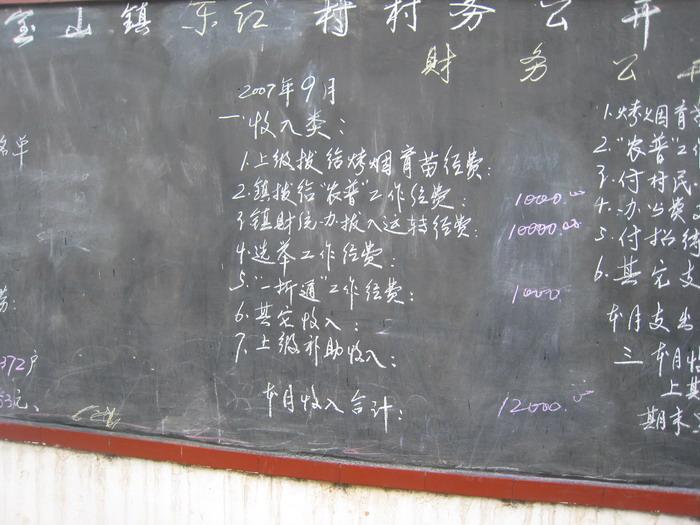 宝山镇东红村村务公开
财务公开
2007年9月
一 收入类:
1.上级拨给烤烟育苗经费:
2.镇拨给"农普"工作经费: 1000.00
3.镇财统办拨入运转经费: 10000.00
4.选举工作经费:
5."一折通"工作经费: 1000
6.其它收入:
7.上级补助收入:
本月收入合计: 12000.00
名单
372户
53元、
1.烤烟育苗
2."农普"工作
3.付村民
4.办公费
5.付招待
6.其它支
本月支出
三 本月收
上期
期末